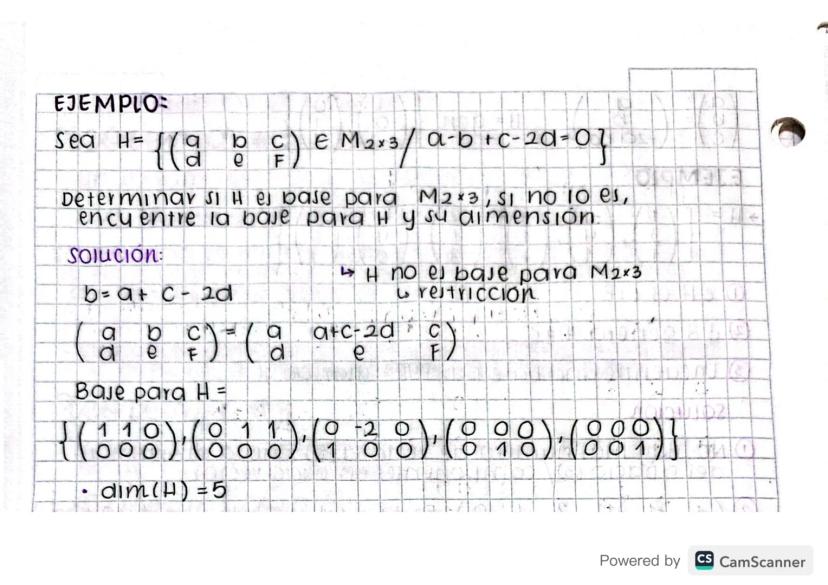 EJEMPLO:
Sea H= {(a b c
d e F) ∈ M2x3 / a-b+c-2d=0}
Determinar si H es base para M2x3, si no lo es,
encuentre la base para H y su dimensión.
Solución:
↳ H no es base para M2x3
b= a+ c- 2d
↳ restricción
(a b c
d e F) = (a a+c-2d c
d e F)
Base para H =
{(1 1 0
0 0 0), (0 1 1
0 0 0), (0 -2 0
1 0 0), (0 0 0
0 1 0), (0 0 0
0 0 1)}
• dim(H) = 5
Powered by CS CamScanner